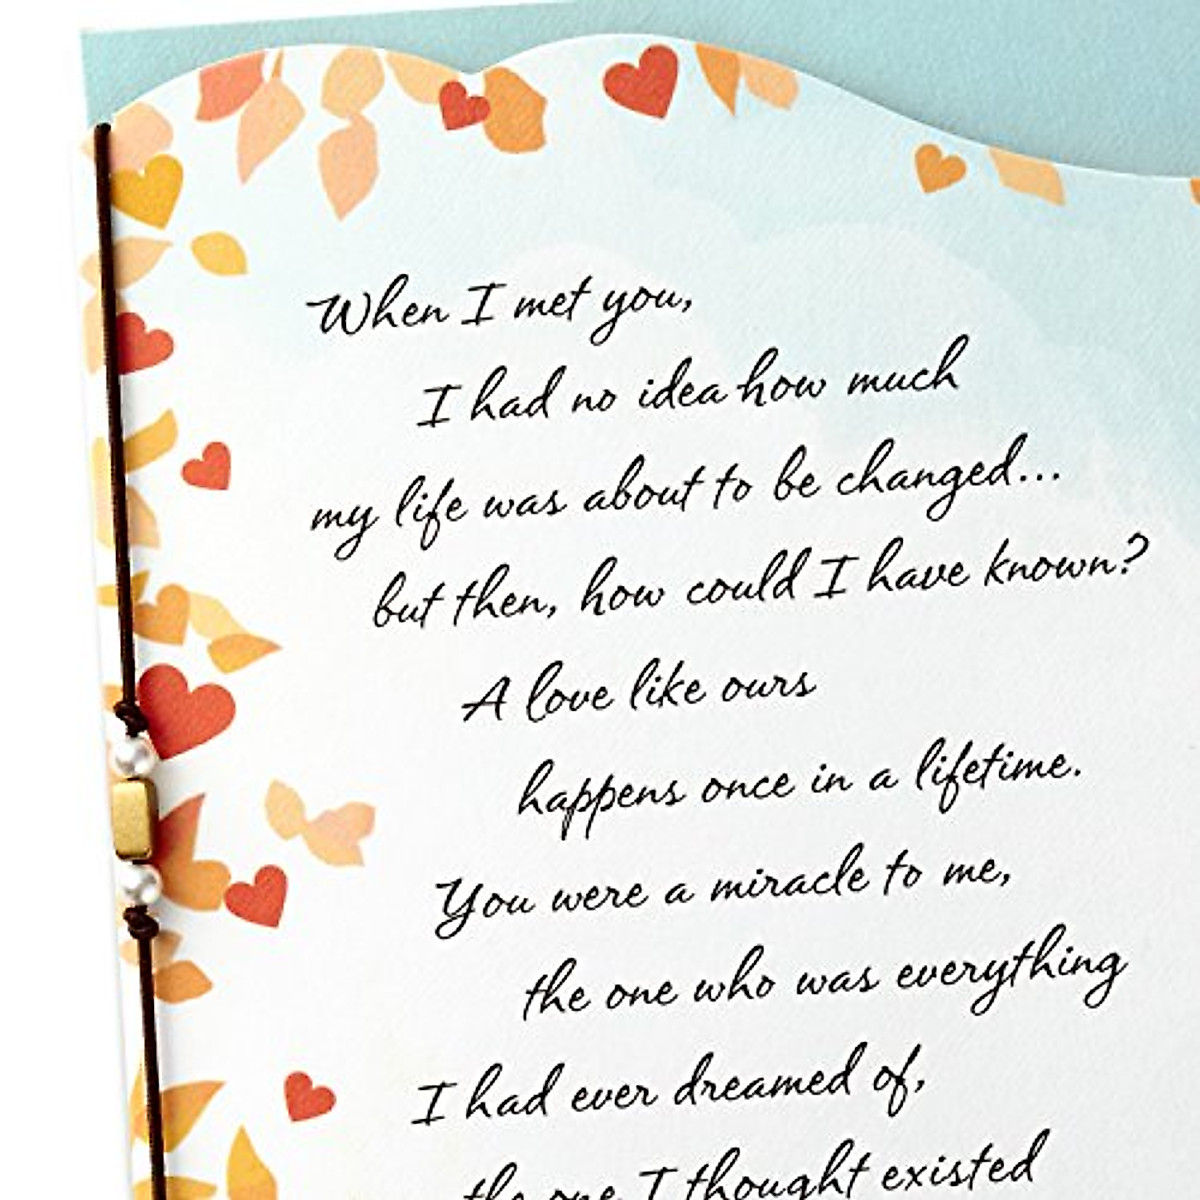 When I met you,
I had no idea how much
my life was about to be changed...
but then, how could I have known?
A love like ours
happens once in a lifetime.
You were a miracle to me,
the one who was everything
I had ever dreamed of,
the one I thought existed